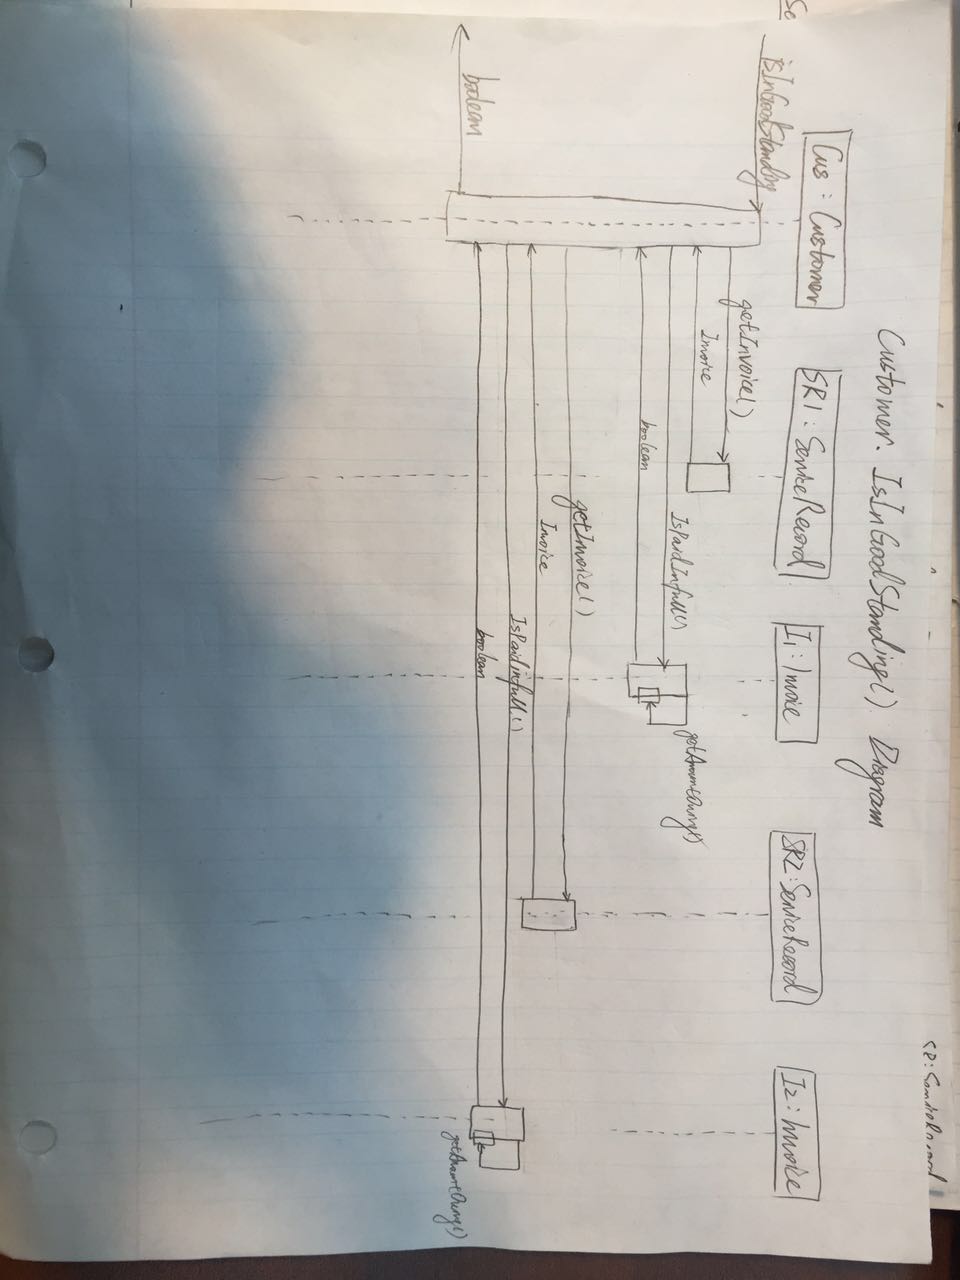 Customer. IsInGoodStanding() Diagram
Cus : Customer
SR1 : ServiceRecord
I1 : Invoice
SR2 : ServiceRecord
I2 : Invoice
isInGoodStanding
getInvoice()
Invoice
IsPaidInfull()
getAmountOwing()
boolean
getInvoice()
Invoice
IsPaidInfull()
getAmountOwing()
boolean
boolean